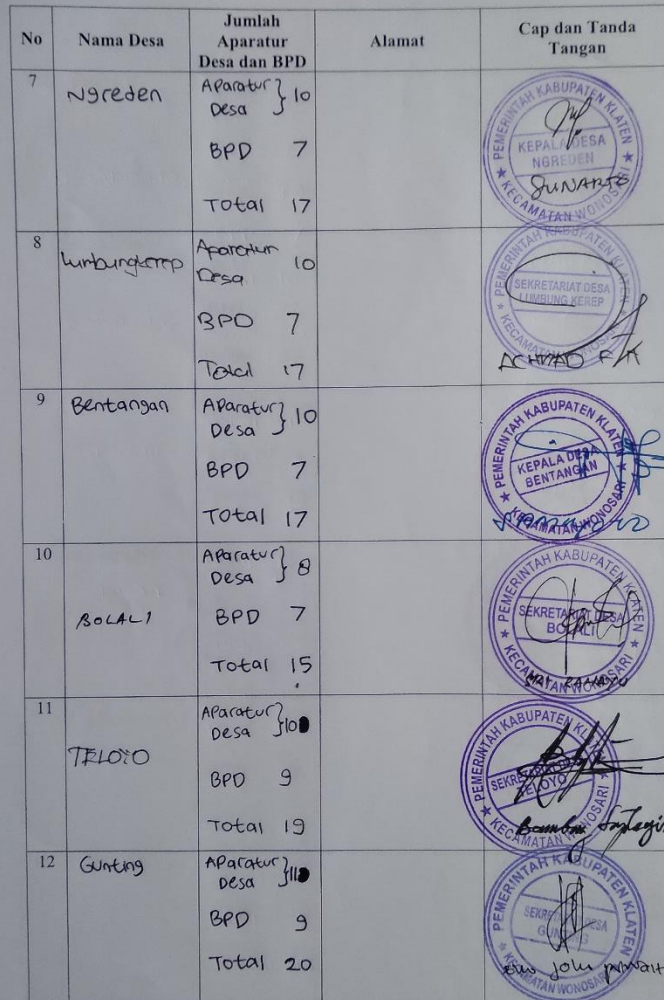 No Nama Desa Jumlah Aparatur Desa dan BPD Alamat Cap dan Tanda Tangan
7 Ngreden Aparatur Desa } 10
BPD 7
Total 17
PEMERINTAH KABUPATEN KLATEN
KEPALA DESA
NGREDEN
KECAMATAN WONOSARI
SUNARTO
8 Lumbungkerep Aparatur Desa 10
BPD 7
Total 17
PEMERINTAH KABUPATEN KLATEN
SEKRETARIAT DESA
LUMBUNG KEREP
KECAMATAN WONOSARI
ACHMAD F
9 Bentangan Aparatur Desa } 10
BPD 7
Total 17
PEMERINTAH KABUPATEN KLATEN
KEPALA DESA
BENTANGAN
KECAMATAN WONOSARI
10 BOLALI Aparatur Desa } 8
BPD 7
Total 15
PEMERINTAH KABUPATEN KLATEN
SEKRETARIAT DESA
BOLALI
KECAMATAN WONOSARI
SRI RAHAYU
11 TELOYO Aparatur Desa } 10
BPD 9
Total 19
PEMERINTAH KABUPATEN KLATEN
TELOYO
KECAMATAN WONOSARI
Bambang
12 Gunting Aparatur Desa } 11
BPD 9
Total 20
PEMERINTAH KABUPATEN KLATEN
SEKRETARIAT DESA
GUNTING
KECAMATAN WONOSARI